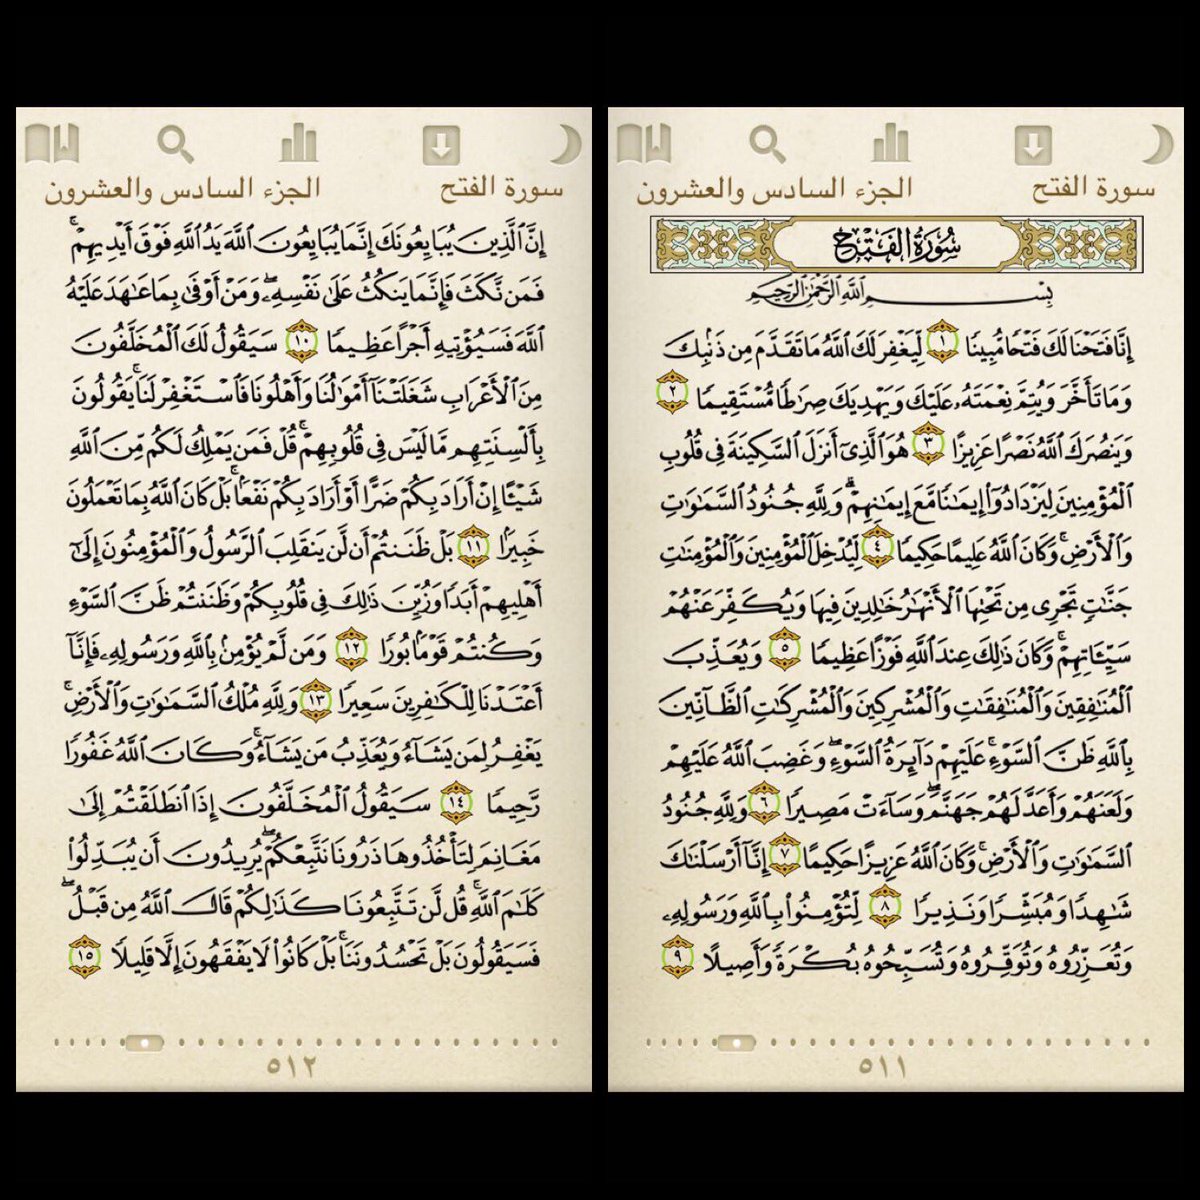 سورة الفتح الجزء السادس والعشرون
سُورَةُ الفَتْحِ
بِسْمِ ٱللَّهِ ٱلرَّحْمَٰنِ ٱلرَّحِيمِ
إِنَّا فَتَحْنَا لَكَ فَتْحًا مُّبِينًا ١ لِّيَغْفِرَ لَكَ ٱللَّهُ مَا تَقَدَّمَ مِن ذَنۢبِكَ
وَمَا تَأَخَّرَ وَيُتِمَّ نِعْمَتَهُۥ عَلَيْكَ وَيَهْدِيَكَ صِرَٰطًا مُّسْتَقِيمًا ٢
وَيَنصُرَكَ ٱللَّهُ نَصْرًا عَزِيزًا ٣ هُوَ ٱلَّذِىٓ أَنزَلَ ٱلسَّكِينَةَ فِى قُلُوبِ
ٱلْمُؤْمِنِينَ لِيَزْدَادُوٓا۟ إِيمَٰنًا مَّعَ إِيمَٰنِهِمْ ۗ وَلِلَّهِ جُنُودُ ٱلسَّمَٰوَٰتِ
وَٱلْأَرْضِ ۚ وَكَانَ ٱللَّهُ عَلِيمًا حَكِيمًا ٤ لِّيُدْخِلَ ٱلْمُؤْمِنِينَ وَٱلْمُؤْمِنَٰتِ
جَنَّٰتٍ تَجْرِى مِن تَحْتِهَا ٱلْأَنْهَٰرُ خَٰلِدِينَ فِيهَا وَيُكَفِّرَ عَنْهُمْ
سَيِّـَٔاتِهِمْ ۚ وَكَانَ ذَٰلِكَ عِندَ ٱللَّهِ فَوْزًا عَظِيمًا ٥ وَيُعَذِّبَ
ٱلْمُنَٰفِقِينَ وَٱلْمُنَٰفِقَٰتِ وَٱلْمُشْرِكِينَ وَٱلْمُشْرِكَٰتِ ٱلظَّآنِّينَ
بِٱللَّهِ ظَنَّ ٱلسَّوْءِ ۚ عَلَيْهِمْ دَآئِرَةُ ٱلسَّوْءِ ۖ وَغَضِبَ ٱللَّهُ عَلَيْهِمْ
وَلَعَنَهُمْ وَأَعَدَّ لَهُمْ جَهَنَّمَ ۖ وَسَآءَتْ مَصِيرًا ٦ وَلِلَّهِ جُنُودُ
ٱلسَّمَٰوَٰتِ وَٱلْأَرْضِ ۚ وَكَانَ ٱللَّهُ عَزِيزًا حَكِيمًا ٧ إِنَّآ أَرْسَلْنَٰكَ
شَٰهِدًا وَمُبَشِّرًا وَنَذِيرًا ٨ لِّتُؤْمِنُوا۟ بِٱللَّهِ وَرَسُولِهِۦ
وَتُعَزِّرُوهُ وَتُوَقِّرُوهُ وَتُسَبِّحُوهُ بُكْرَةً وَأَصِيلًا ٩
٥١١
سورة الفتح الجزء السادس والعشرون
إِنَّ ٱلَّذِينَ يُبَايِعُونَكَ إِنَّمَا يُبَايِعُونَ ٱللَّهَ يَدُ ٱللَّهِ فَوْقَ أَيْدِيهِمْ ۚ
فَمَن نَّكَثَ فَإِنَّمَا يَنكُثُ عَلَىٰ نَفْسِهِۦ ۖ وَمَنْ أَوْفَىٰ بِمَا عَٰهَدَ عَلَيْهُ
ٱللَّهَ فَسَيُؤْتِيهِ أَجْرًا عَظِيمًا ١٠ سَيَقُولُ لَكَ ٱلْمُخَلَّفُونَ
مِنَ ٱلْأَعْرَابِ شَغَلَتْنَآ أَمْوَٰلُنَا وَأَهْلُونَا فَٱسْتَغْفِرْ لَنَا ۚ يَقُولُونَ
بِأَلْسِنَتِهِم مَّا لَيْسَ فِى قُلُوبِهِمْ ۚ قُلْ فَمَن يَمْلِكُ لَكُم مِّنَ ٱللَّهِ
شَيْـًٔا إِنْ أَرَادَ بِكُمْ ضَرًّا أَوْ أَرَادَ بِكُمْ نَفْعًۢا ۚ بَلْ كَانَ ٱللَّهُ بِمَا تَعْمَلُونَ
خَبِيرًۢا ١١ بَلْ ظَنَنتُمْ أَن لَّن يَنقَلِبَ ٱلرَّسُولُ وَٱلْمُؤْمِنُونَ إِلَىٰٓ
أَهْلِيهِمْ أَبَدًا وَزُيِّنَ ذَٰلِكَ فِى قُلُوبِكُمْ وَظَنَنتُمْ ظَنَّ ٱلسَّوْءِ
وَكُنتُمْ قَوْمًۢا بُورًا ١٢ وَمَن لَّمْ يُؤْمِنۢ بِٱللَّهِ وَرَسُولِهِۦ فَإِنَّآ
أَعْتَدْنَا لِلْكَٰفِرِينَ سَعِيرًا ١٣ وَلِلَّهِ مُلْكُ ٱلسَّمَٰوَٰتِ وَٱلْأَرْضِ ۚ
يَغْفِرُ لِمَن يَشَآءُ وَيُعَذِّبُ مَن يَشَآءُ ۚ وَكَانَ ٱللَّهُ غَفُورًا
رَّحِيمًا ١٤ سَيَقُولُ ٱلْمُخَلَّفُونَ إِذَا ٱنطَلَقْتُمْ إِلَىٰ
مَغَانِمَ لِتَأْخُذُوهَا ذَرُونَا نَتَّبِعْكُمْ ۖ يُرِيدُونَ أَن يُبَدِّلُوا۟
كَلَٰمَ ٱللَّهِ ۚ قُل لَّن تَتَّبِعُونَا كَذَٰلِكُمْ قَالَ ٱللَّهُ مِن قَبْلُ ۖ
فَسَيَقُولُونَ بَلْ تَحْسُدُونَنَا ۚ بَلْ كَانُوا۟ لَا يَفْقَهُونَ إِلَّا قَلِيلًا ١٥
٥١٢